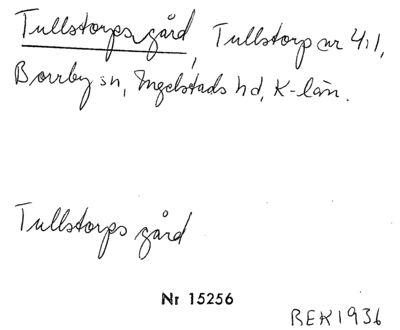 Tullstorps gård, Tullstorp nr 4:1,
Borrby sn, Ingelstads hd, K-län.
Tullstorps gård
Nr 15256
BEK1936